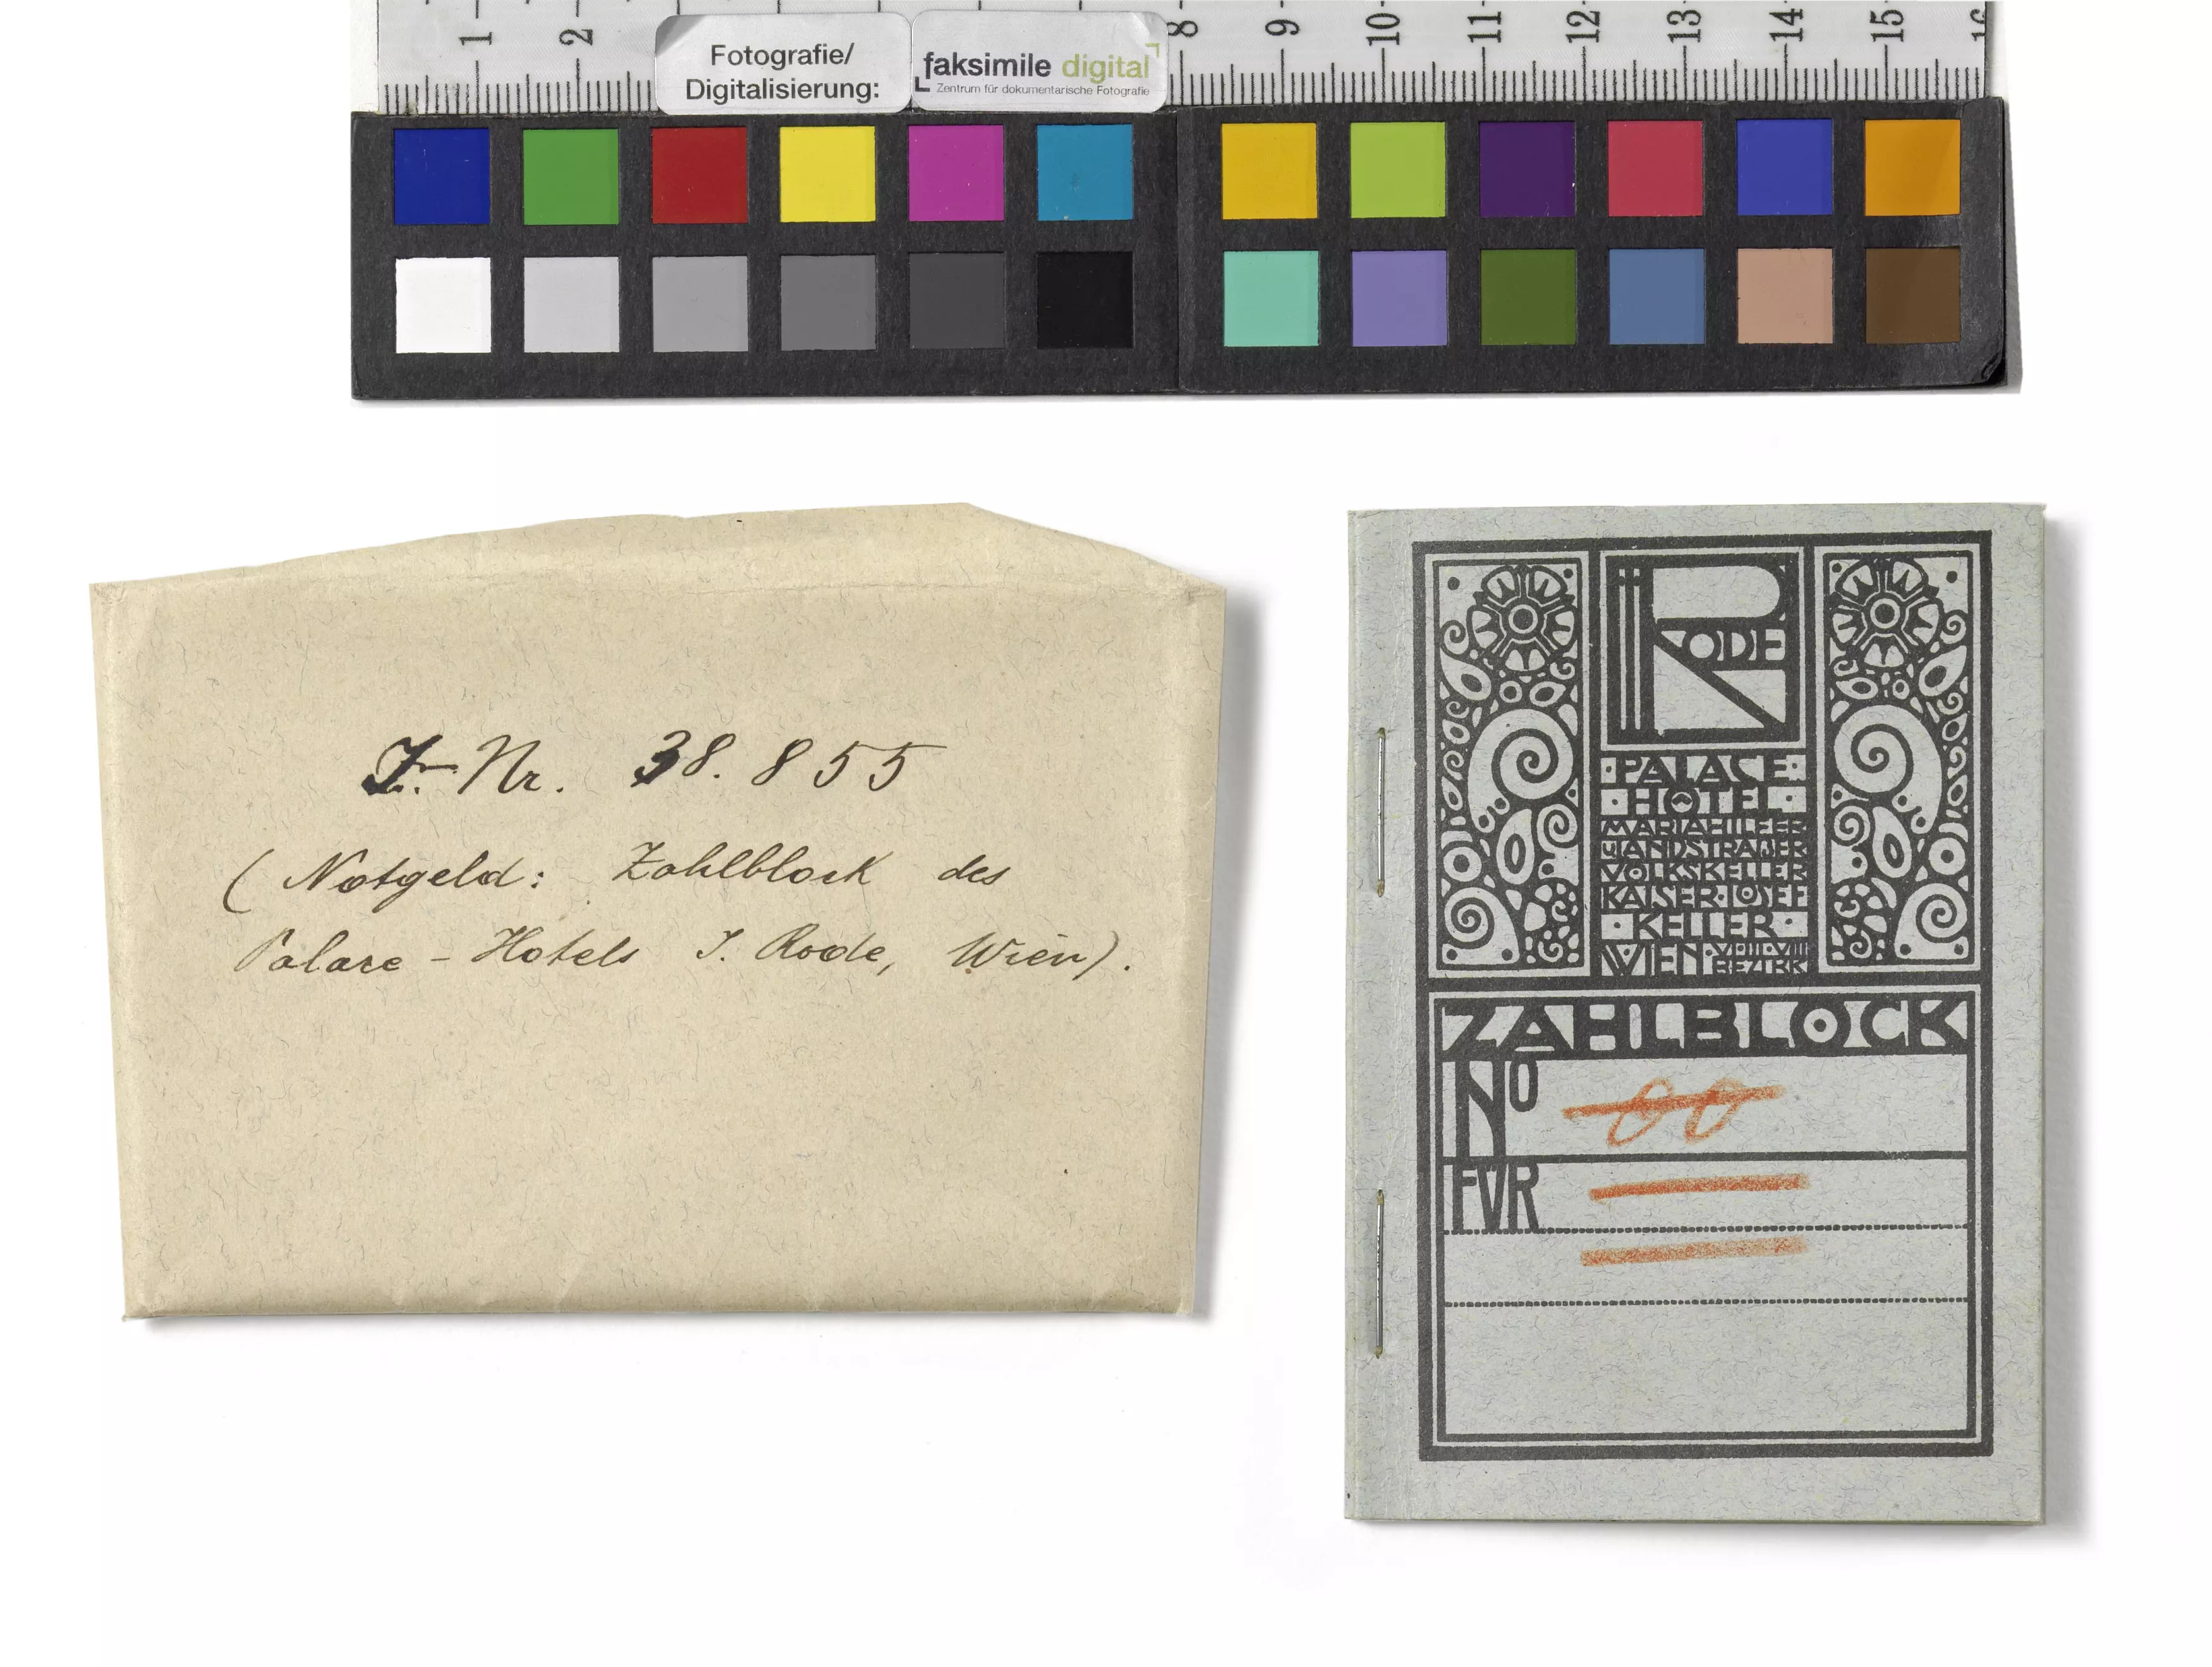 1 2 8 9 10 11 12 13 14 15 16
Fotografie/
Digitalisierung:
faksimile digital
Zentrum für dokumentarische Fotografie
I.-Nr. 38.855
(Notgeld: Zahlblock des
Palace-Hotels J. Rode, Wien).
RODE
·PALACE·
·HOTEL·
MARIAHILFER
U LANDSTRAßER
VOLKSKELLER
KAISER·JOSEF
·KELLER·
WIEN·VI·III·VIII
BEZIRK
ZAHLBLOCK
NO 00
FÜR